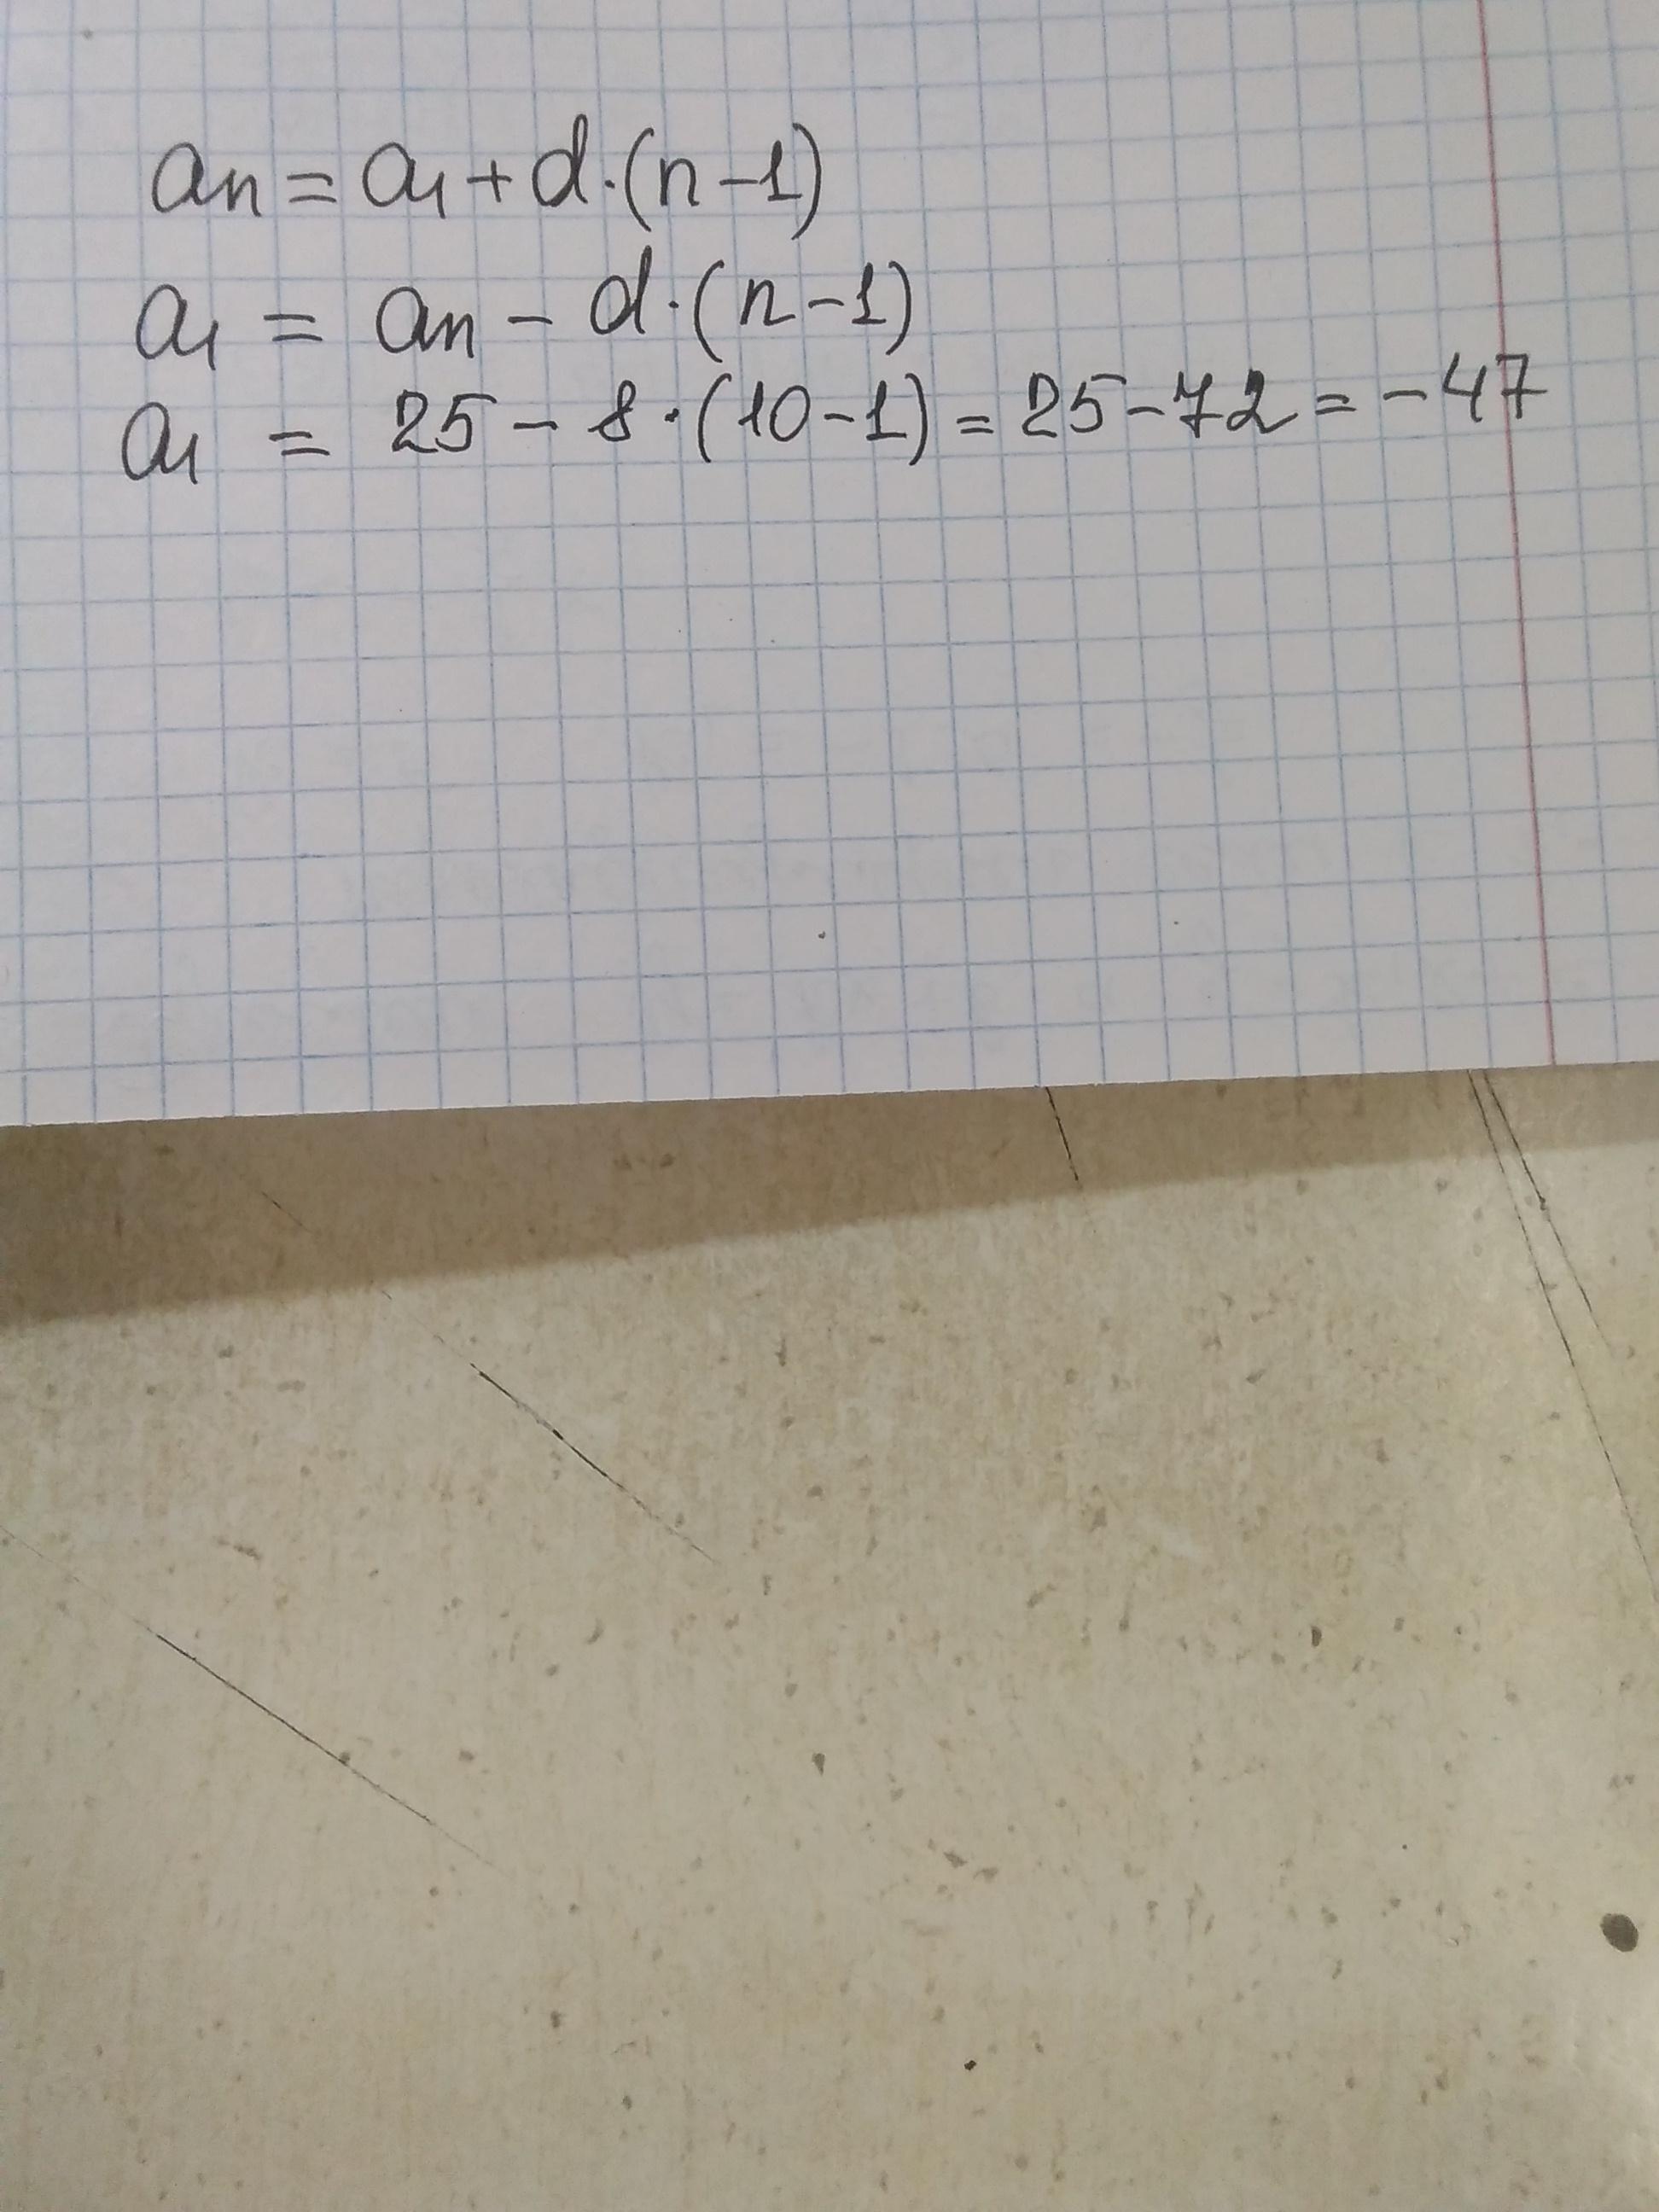 an = a1 + d·(n-1)
a1 = an - d·(n-1)
a1 = 25 - 8·(10-1) = 25-72 = -47